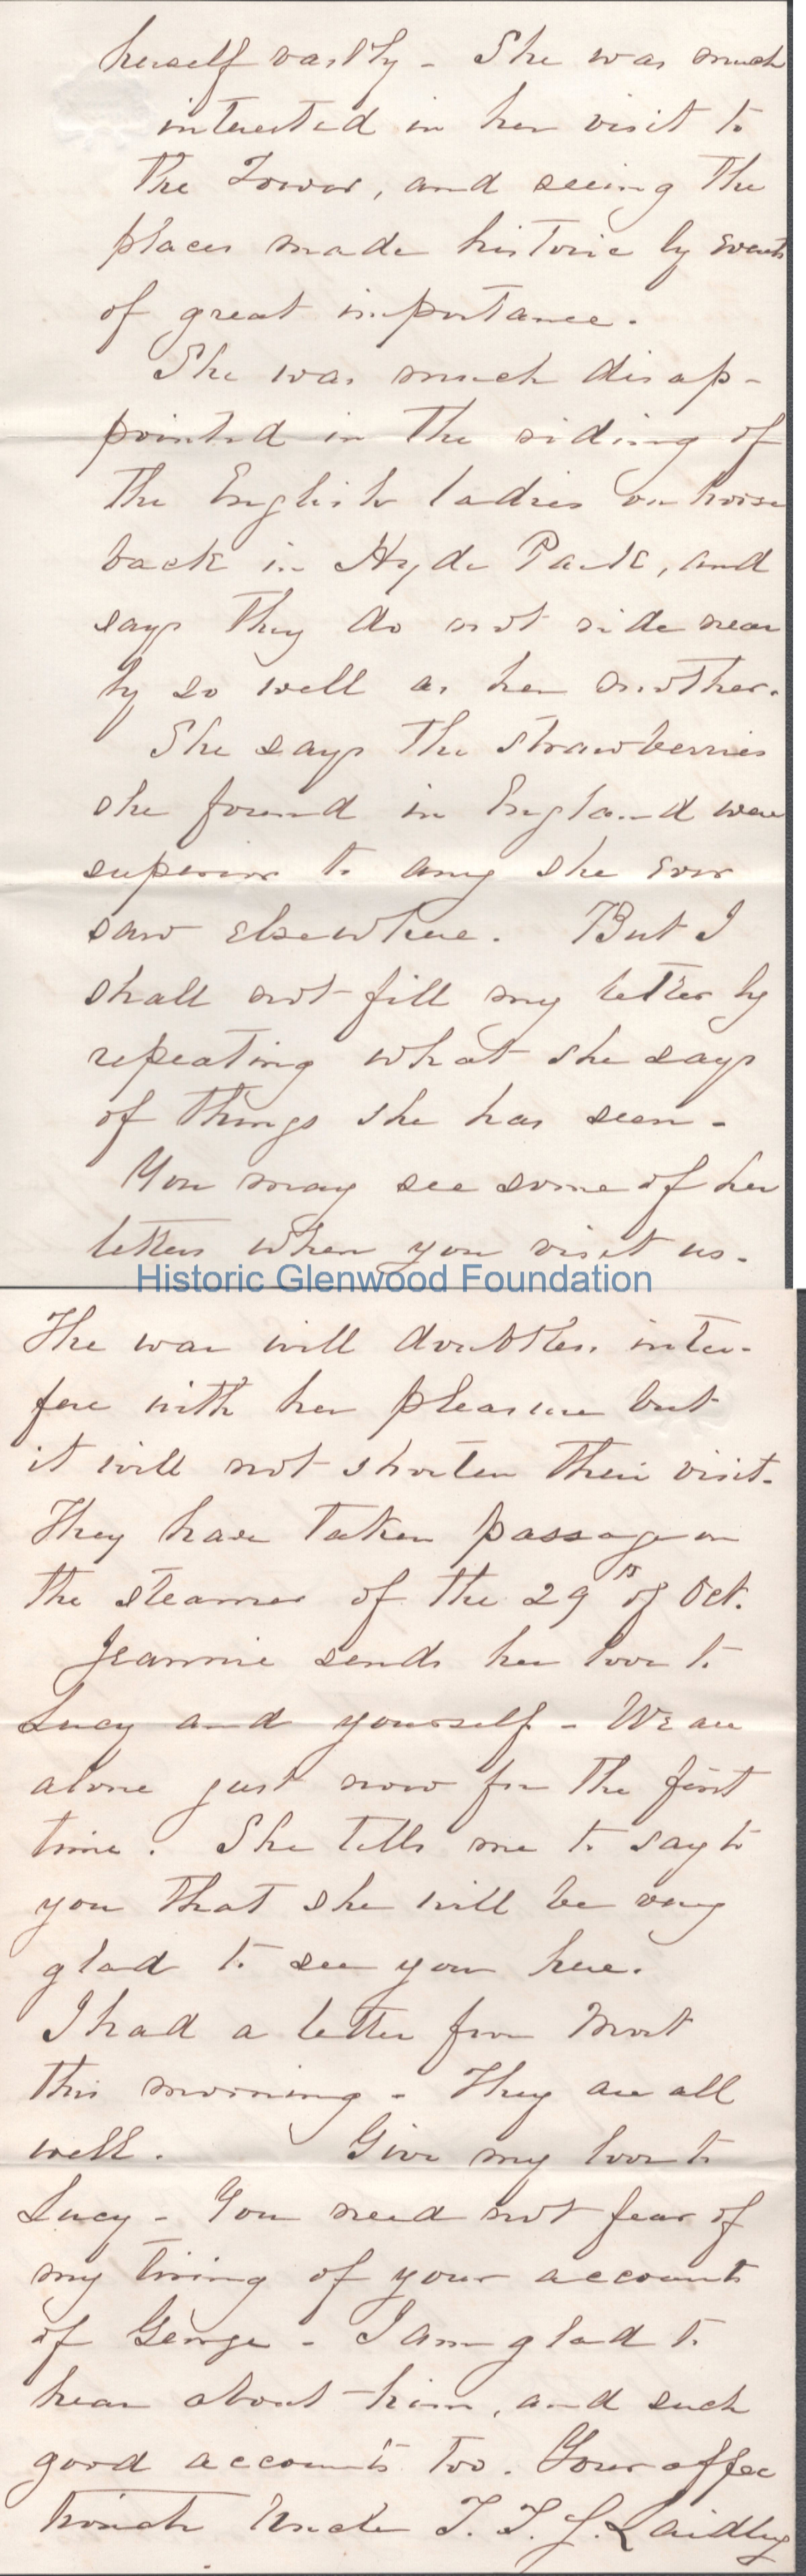 herself vastly - She was much
interested in her visit to
the Tower, and seeing the
places made historic by events
of great importance.
She was much disap-
pointed in the riding of
the English ladies on horse
back in Hyde Park, and
says they do not ride near
ly so well as her mother.
She says the strawberries
she found in England were
superior to any she ever
saw elsewhere. But I
shall not fill my letter by
repeating what she says
of things she has seen -
You may see some of her
letters when you visit us.
Historic Glenwood Foundation
The war will doubtless inter-
fere with her pleasure but
it will not shorten their visit.
They have taken passage on
the steamer of the 29th of Oct.
Jeannie sends her love to
Lucy and yourself - We are
alone just now for the first
time. She tells me to say to
you that she will be very
glad to see you here.
I had a letter from Mort
this morning - They are all
well. Give my love to
Lucy - You need not fear of
my tiring of your accounts
of George - I am glad to
hear about him, and such
good accounts too. Your affec
tionate Uncle T. T. S. Laidley